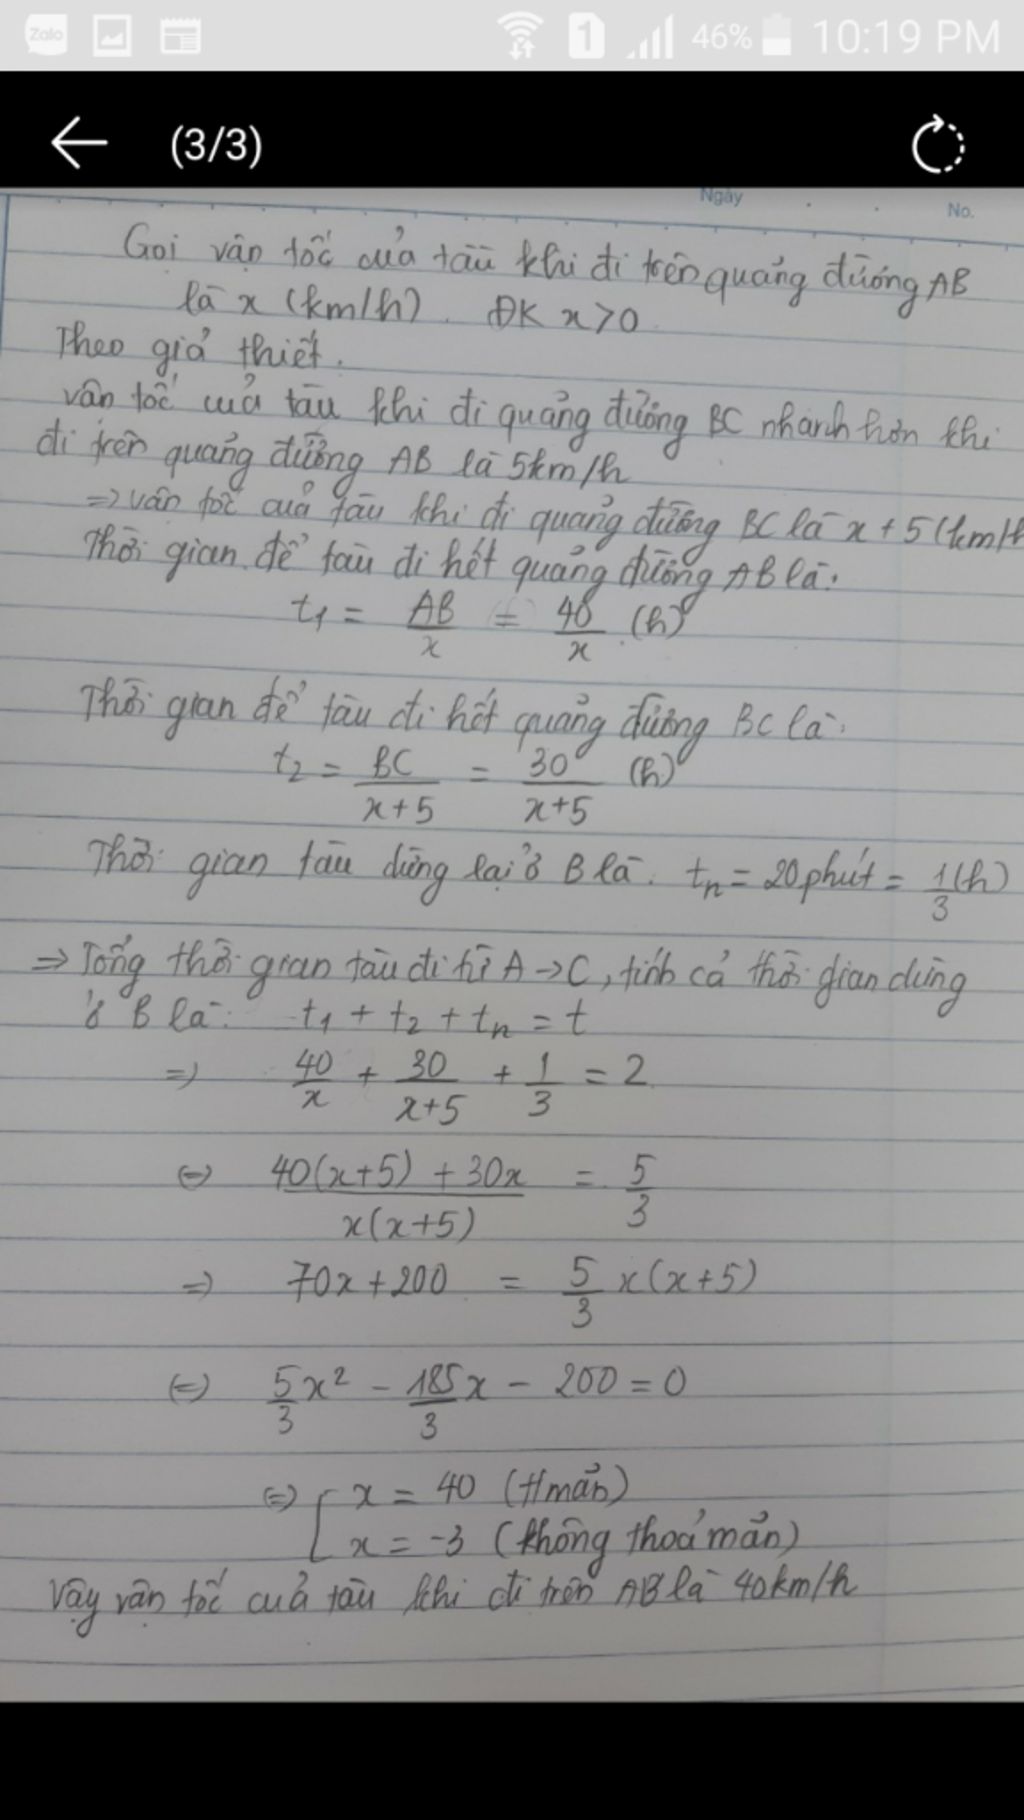 Zalo 1 46% 10:19 PM
(3/3)
Ngày
No.
Gọi vận tốc của tàu khi đi trên quảng đường AB
là x (km/h). ĐK x>0
Theo giả thiết.
vân tốc của tàu khi đi quảng đường BC nhanh hơn khi
đi trên quảng đường AB là 5km/h
=> vân tốc của tàu khi đi quảng đường BC là x + 5 (km/h
Thời gian để tàu đi hết quảng đường AB là:
t₁ = AB/x = 40/x (h)
Thời gian để tàu đi hết quảng đường BC là:
t₂ = BC/(x+5) = 30/(x+5) (h)
Thời gian tàu dừng lại ở B là. tₙ = 20 phút = 1/3 (h)
=> Tổng thời gian tàu đi từ A -> C, tính cả thời gian dừng
ở B là: t₁ + t₂ + tₙ = t
=> 40/x + 30/(x+5) + 1/3 = 2
(=) (40(x+5) + 30x)/(x(x+5)) = 5/3
=> 70x + 200 = 5/3 x(x+5)
(=) 5/3 x² - 185/3 x - 200 = 0
(=) [ x = 40 (t/mãn)
x = -3 (không thoả mãn)
Vậy vận tốc của tàu khi đi trên AB là 40km/h